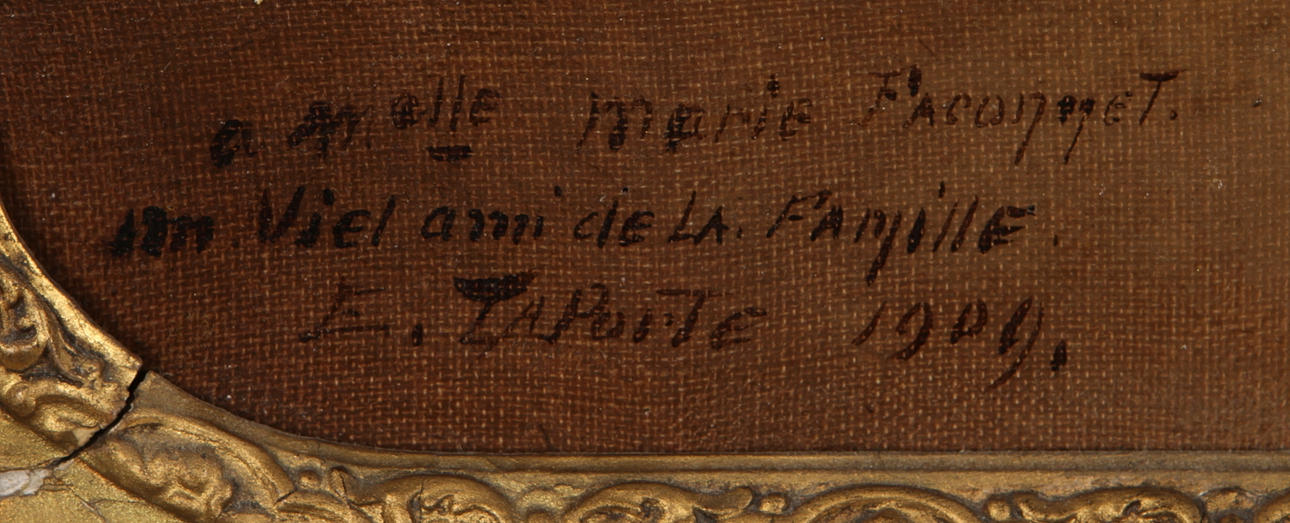 a melle marie FAconnET.
un Viel ami de LA. FAMille.
E. LAPorTe 1909.